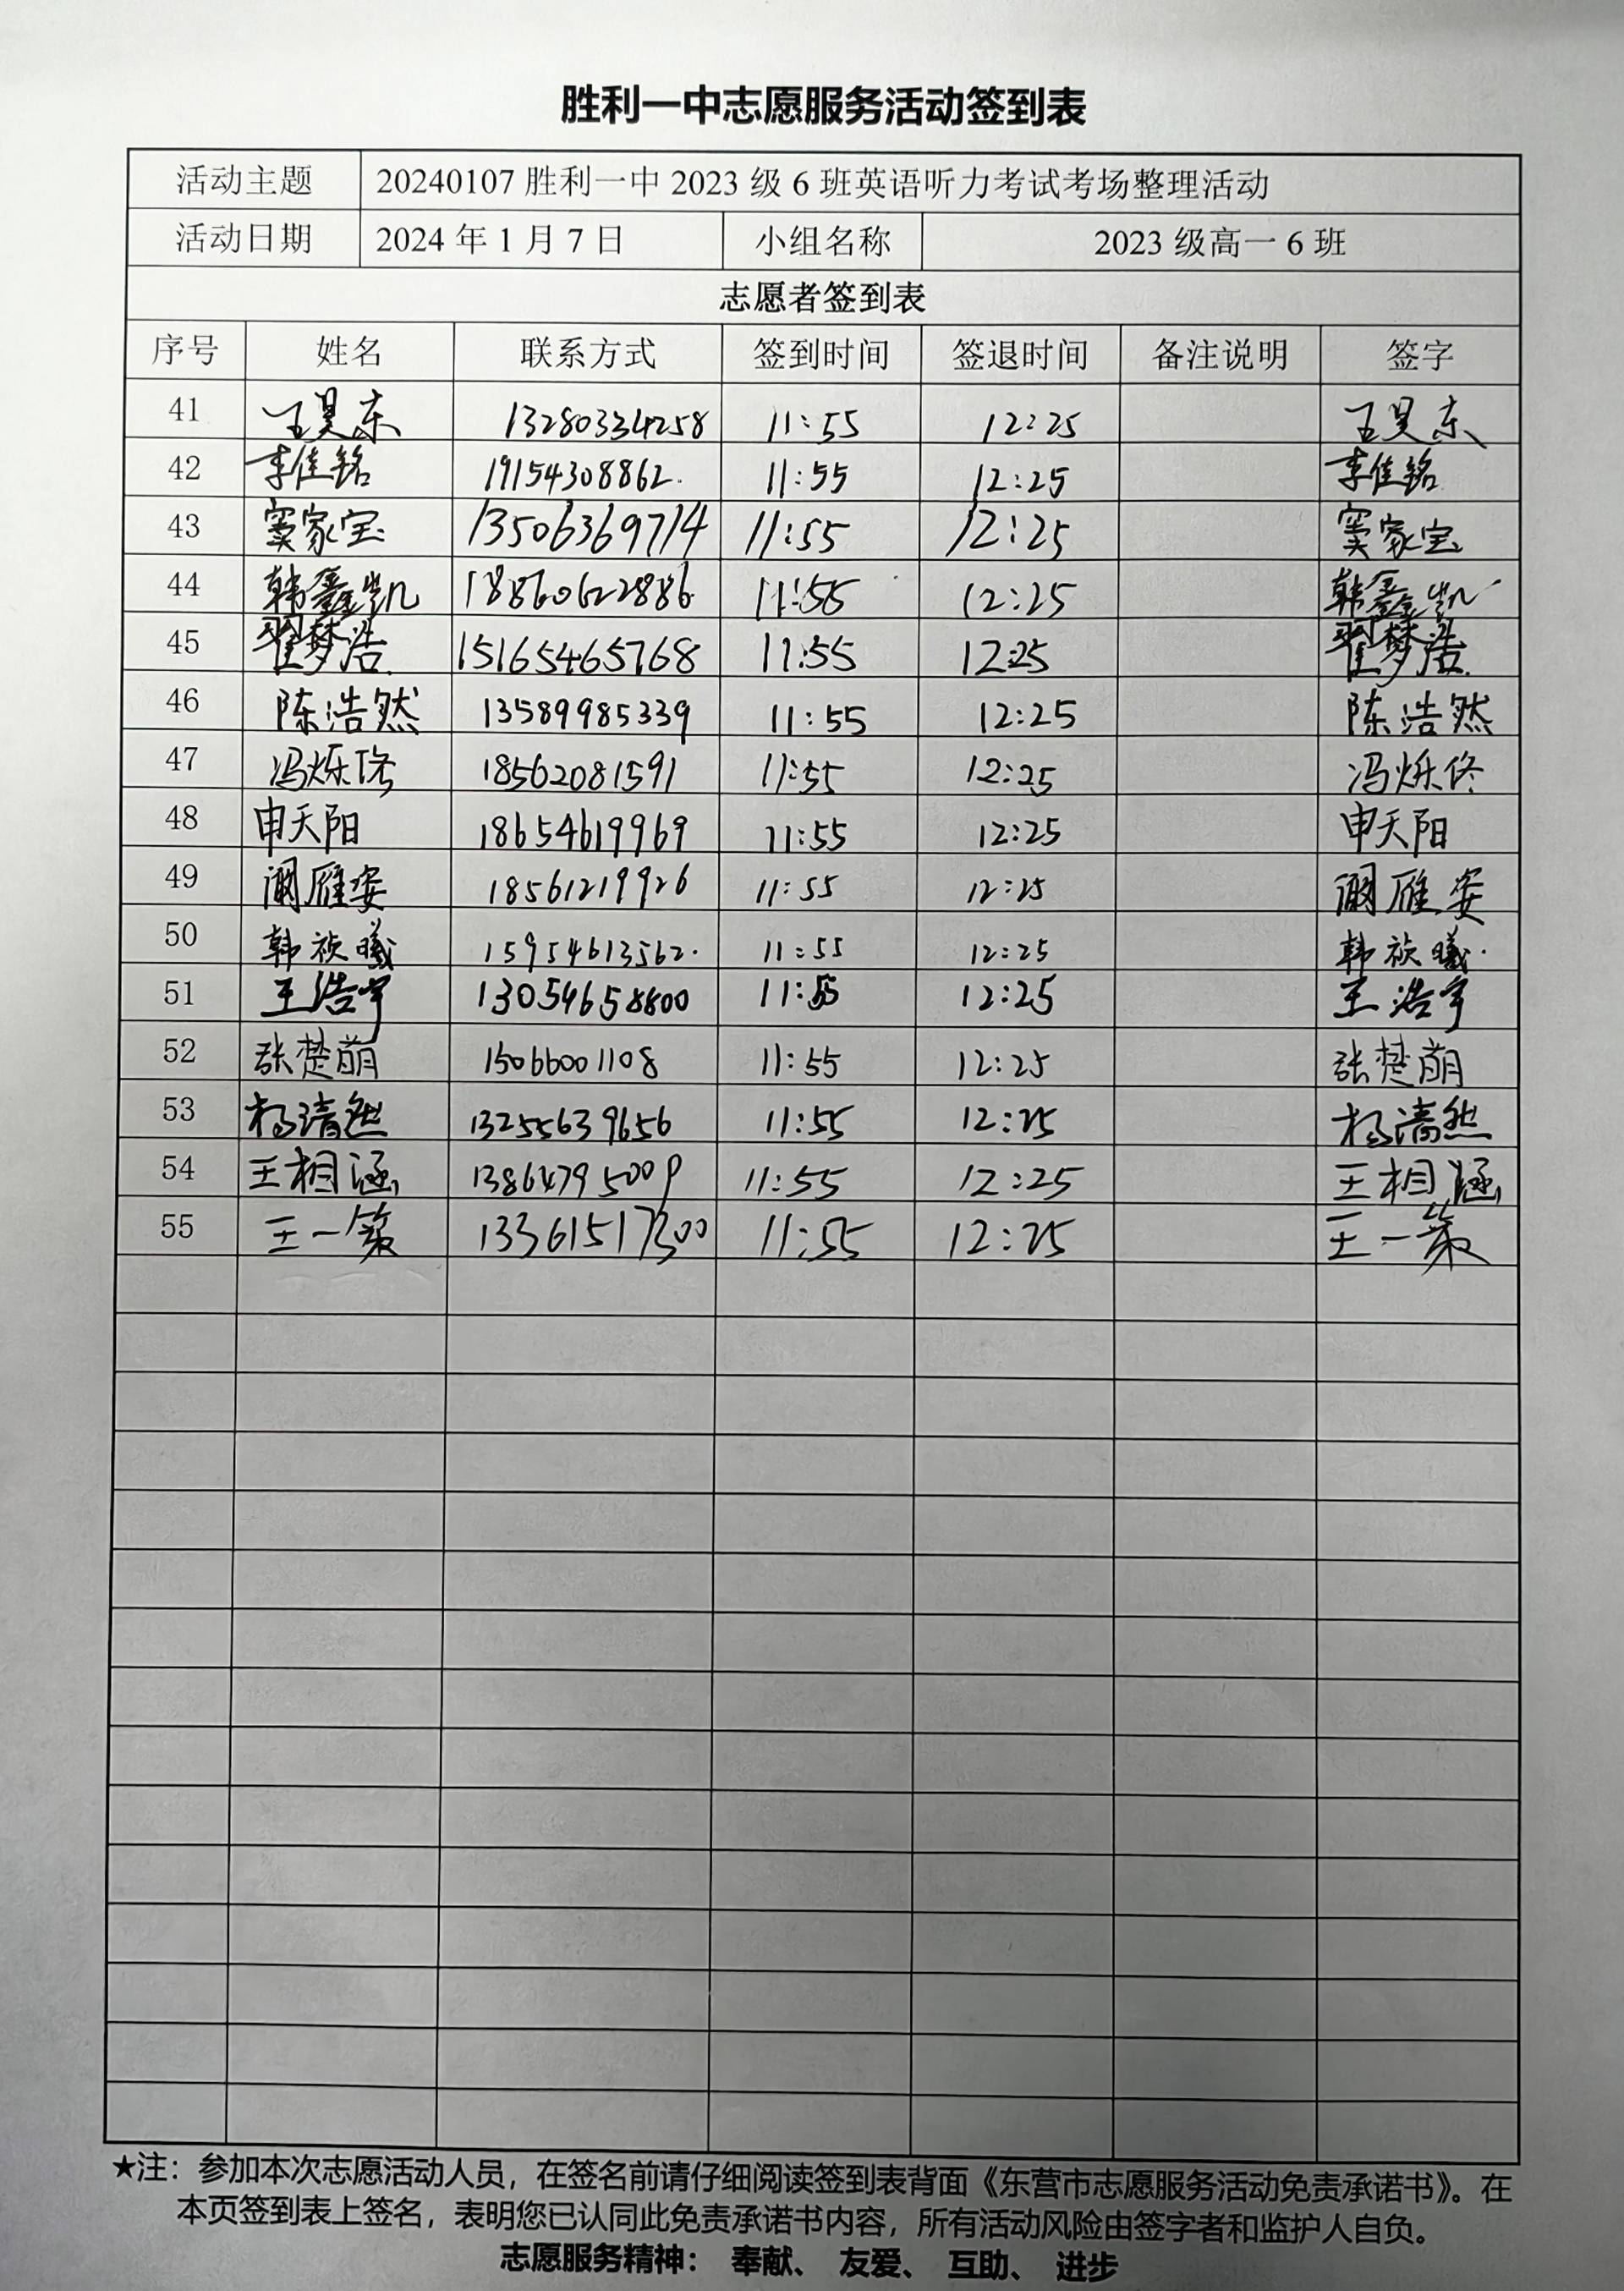 胜利一中志愿服务活动签到表
活动主题 20240107 胜利一中 2023 级 6 班英语听力考试考场整理活动
活动日期 2024 年 1 月 7 日 小组名称 2023 级高一 6 班
志愿者签到表
序号 姓名 联系方式 签到时间 签退时间 备注说明 签字
41 王昊东 13280334258 11:55 12:25 王昊东
42 李佳铭 19154308862. 11:55 12:25 李佳铭
43 窦家宝 13506369714 11:55 12:25 窦家宝
44 韩鑫凯 18860622886 11:55 12:25 韩鑫凯
45 翟梦浩 15165465768 11:55 12:25 翟梦浩
46 陈浩然 13589985339 11:55 12:25 陈浩然
47 冯烁佟 18562081591 11:55 12:25 冯烁佟
48 申天阳 18654619969 11:55 12:25 申天阳
49 雁姿 18561219926 11:55 12:25 雁姿
50 韩 曦 15954613562. 11:55 12:25 韩 曦
51 王浩宇 13054658800 11:55 12:25 王浩宇
52 张楚萌 15066001108 11:55 12:25 张楚萌
53 杨清然 13255639656 11:55 12:25 杨清然
54 王相涵 13864795009 11:55 12:25 王相涵
55 王一策 13361517300 11:55 12:25 王一策
★注：参加本次志愿活动人员，在签名前请仔细阅读签到表背面《东营市志愿服务活动免责承诺书》。在
本页签到表上签名，表明您已认同此免责承诺书内容，所有活动风险由签字者和监护人自负。
志愿服务精神： 奉献、 友爱、 互助、 进步